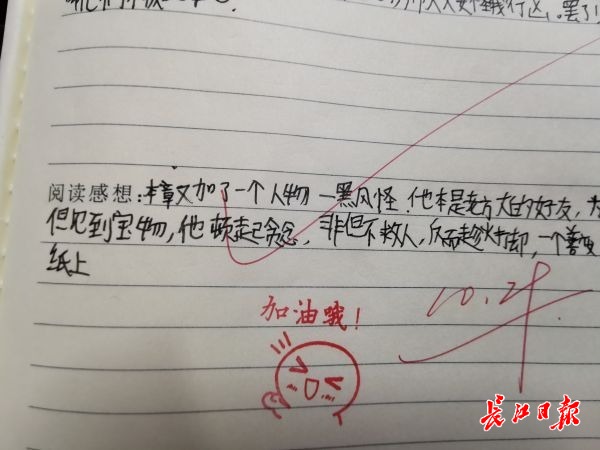 罢了!
阅读感想:本章又加了一个人物—黑风怪.他本是老方丈的好友,
但见到宝物,他顿起贪念,非但不救人,反而趁火打劫,一个善变
纸上
加油哦!
10.29
长江日报